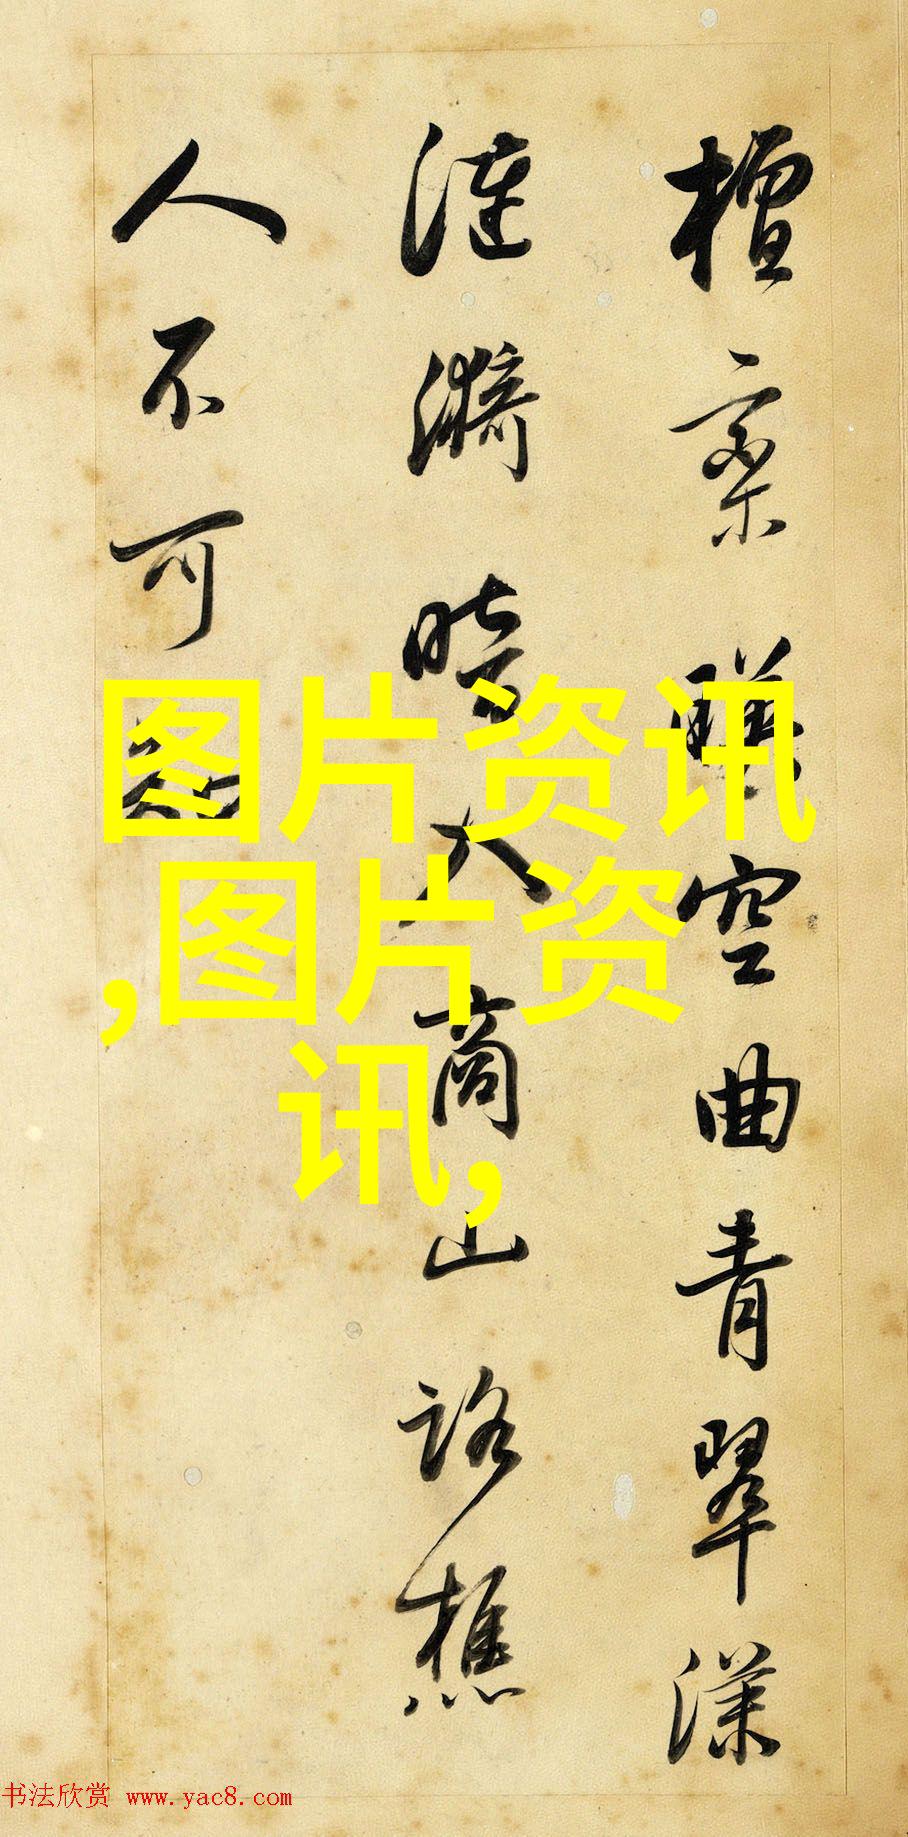 檀栾暎空曲青翠漾
漣漪暗入商山路樵
人不可知
图片资讯
,图片资
讯,
书法欣赏 www.yac8.com